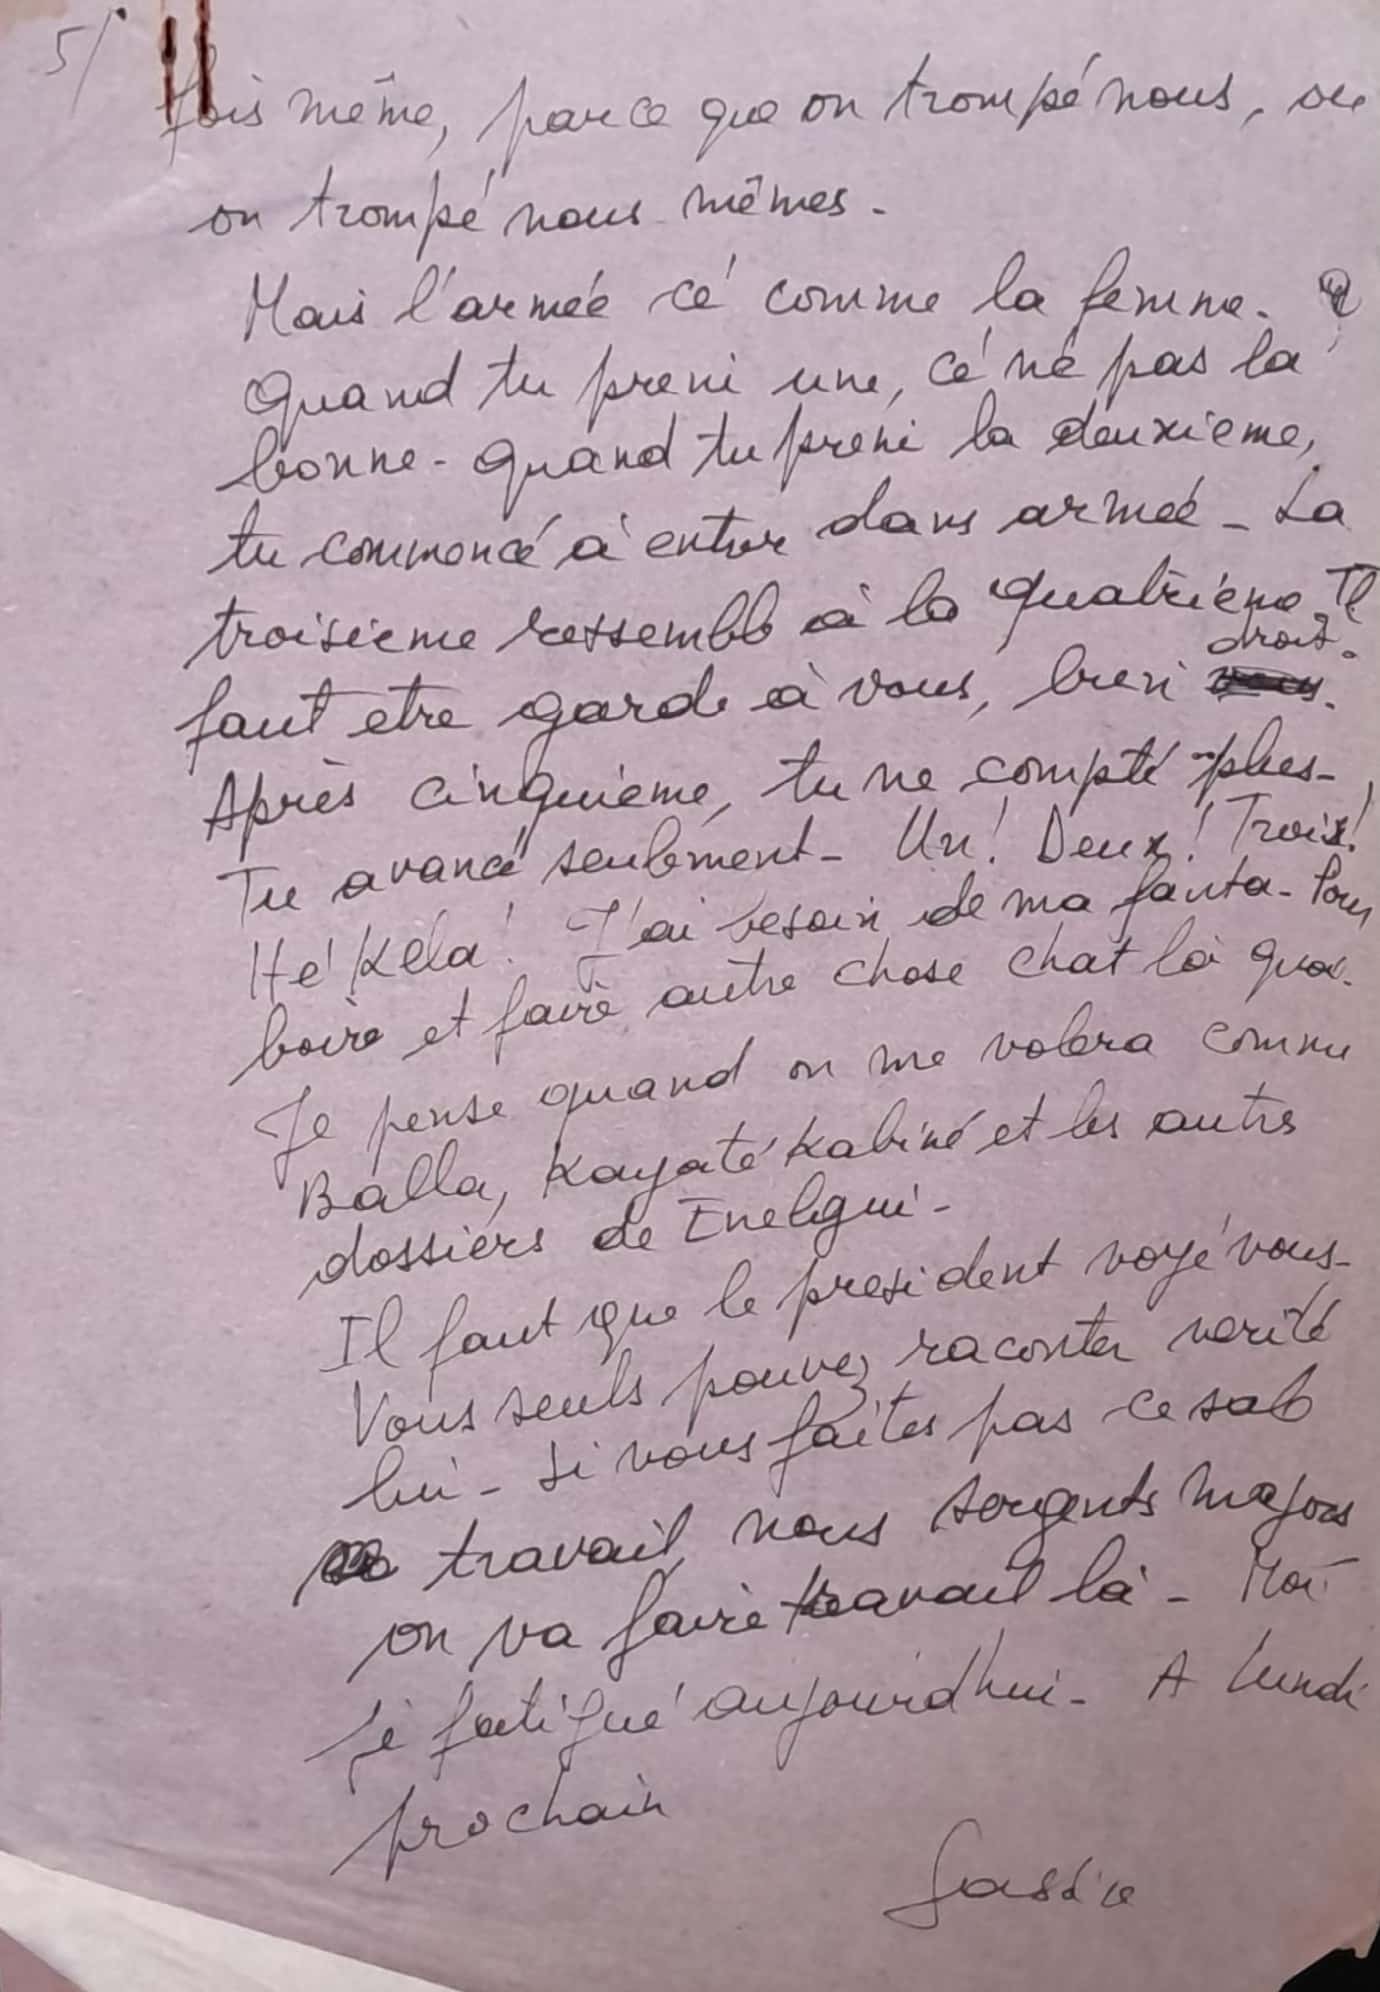 5/
fois même, parce que on trompé nous, ou
on trompé nous mêmes.
Mais l'armée cé comme la femme.
Quand tu preni une, cé né pas la
bonne. Quand tu preni la deuxieme,
tu commencé à entrer dans armée. La
troisieme ressembb à la quatriéme. Il
faut etre garde à vous, bien droit.
Après cinquieme, tu ne compté plus.
Tu avancé seulement. Un! Deux! Troix!
Hé! Kéla! J'ai besoin de ma fanta. Pour
boire et faire autre chose chat là quoi.
Je pense quand on me volera comme
Balla, Kayaté Kabiné et les autres
dossiers de Enelgui.
Il faut que le president voyé vous.
Vous seuls pouvez raconter verité
lui. Si vous faites pas ce sab
travail, nous sergents majors
on va faire travail là. Moi
jé fatigué aujourd'hui. A lundi
prochain